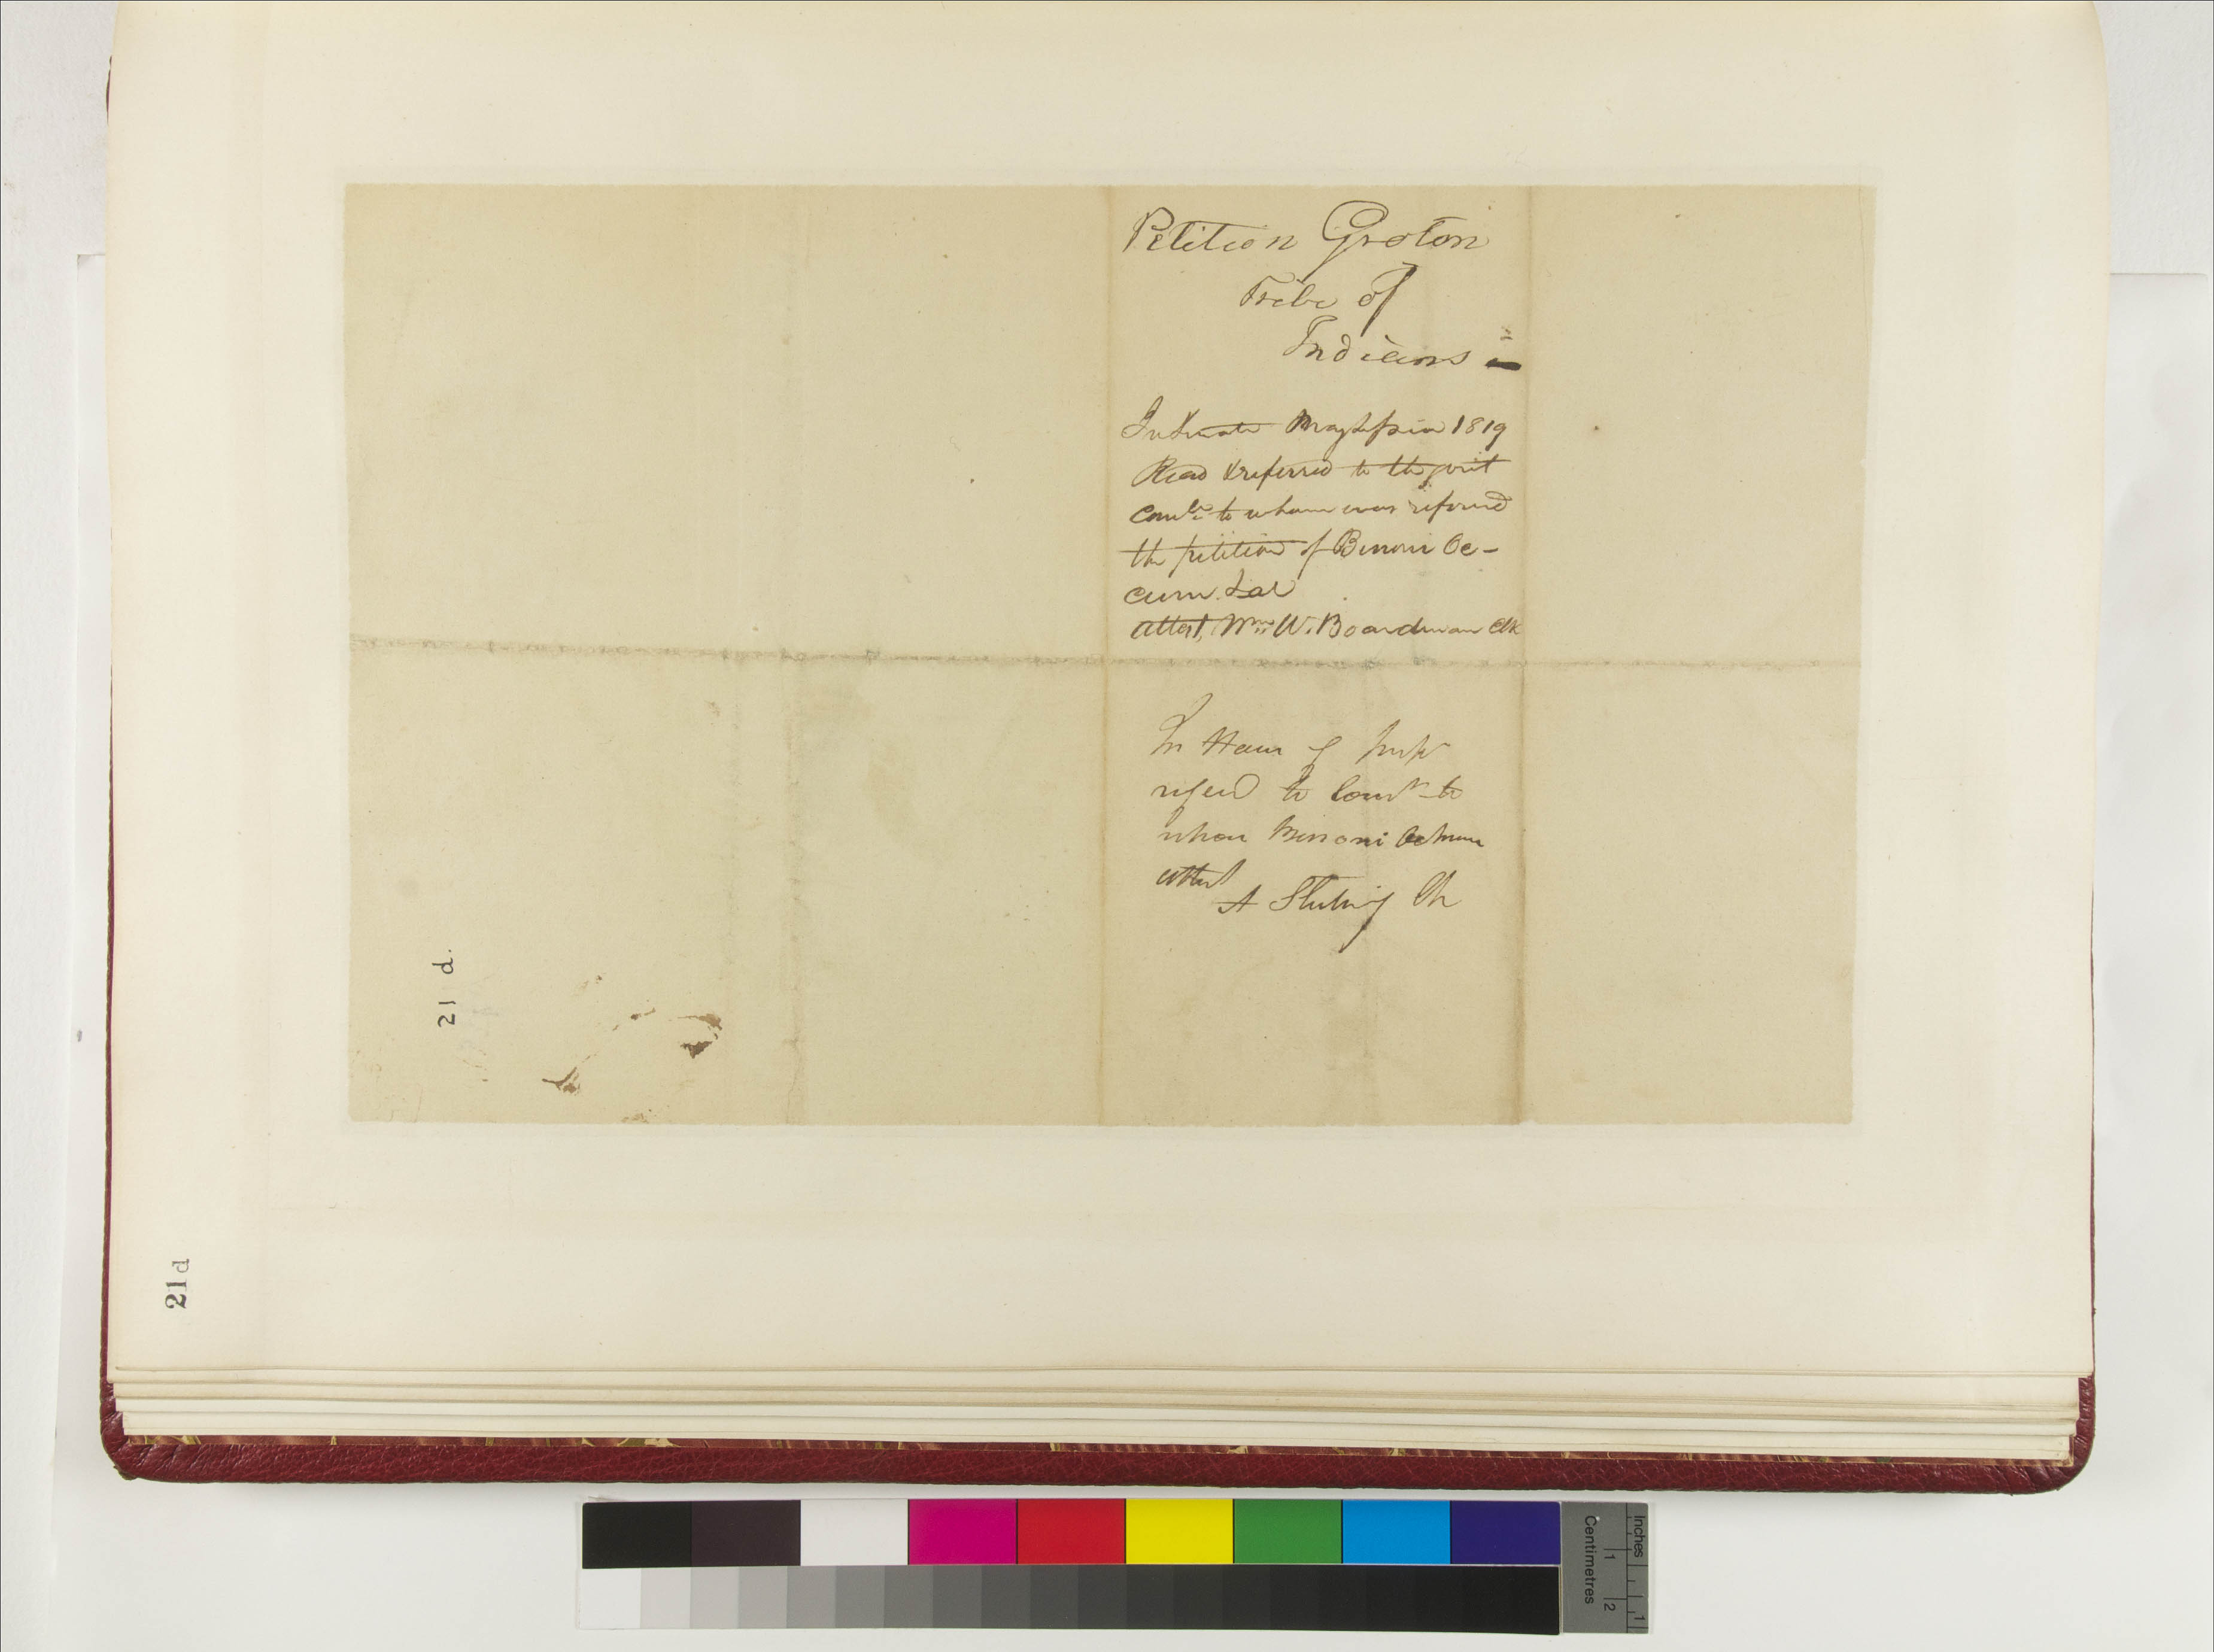 Petition Groton
Tribe of
Indians
In Senate May Session 1819
Read & referred to the joint
Comtee to whom was referred
the petition of Benoni Oc-
cum &al
Attest, Wm W. Boardman Clk
In House of Reps
refered to Comtee to
whom Benoni Occum
attest
A Clk
21 d.
21d
Inches
Centimetres
1
2
1